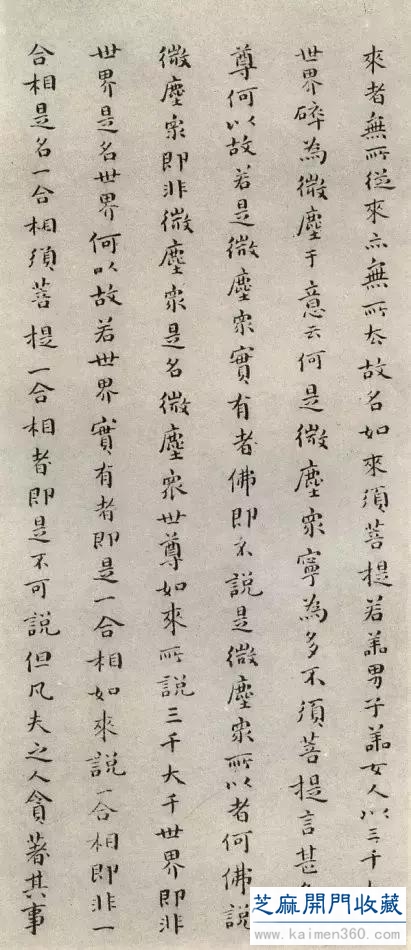 來者無所從來亦無所去故名如來須菩提若善男子善女人以三千大
世界碎為微塵于意云何是微塵眾寧為多不須菩提言甚多
尊何以故若是微塵眾實有者佛即不說是微塵眾所以者何佛說
微塵眾即非微塵眾是名微塵眾世尊如來所說三千大千世界即非
世界是名世界何以故若世界實有者即是一合相如來說一合相即非一
合相是名一合相須菩提一合相者即是不可說但凡夫之人貪著其事
芝麻開門收藏
www.kaimen360.com